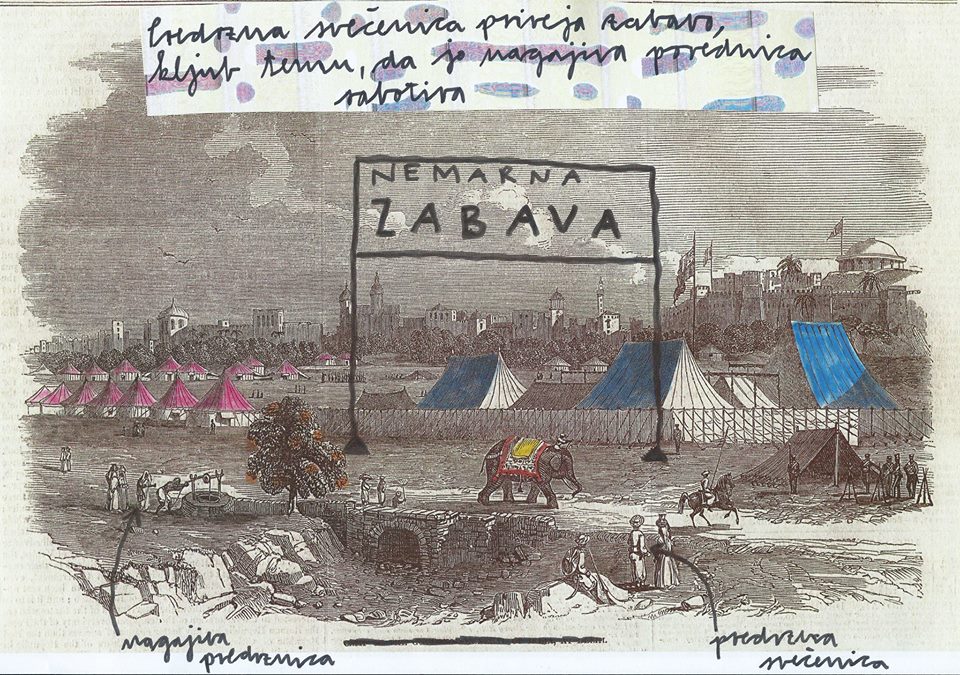 Predrzna svečenica prireja zabavo,
kljub temu, da jo nagajiva porednica
sabotira
NEMARNA
ZABAVA
nagajiva
predrznica
predrzna
svečenica